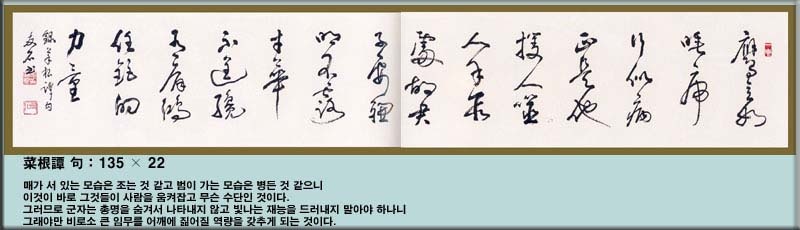 鷹立如
睡虎
行似病
正是他
攫人噬
人手段
處故君
子要聰
明不露
才華
不逞纔
有肩鴻
任鉅的
力量
錄菜根譚句
菜根譚 句 : 135 × 22
매가 서 있는 모습은 조는 것 같고 범이 가는 모습은 병든 것 같으니
이것이 바로 그것들이 사람을 움켜잡고 무슨 수단인 것이다.
그러므로 군자는 총명을 숨겨서 나타내지 않고 빛나는 재능을 드러내지 말아야 하나니
그래야만 비로소 큰 임무를 어깨에 짊어질 역량을 갖추게 되는 것이다.